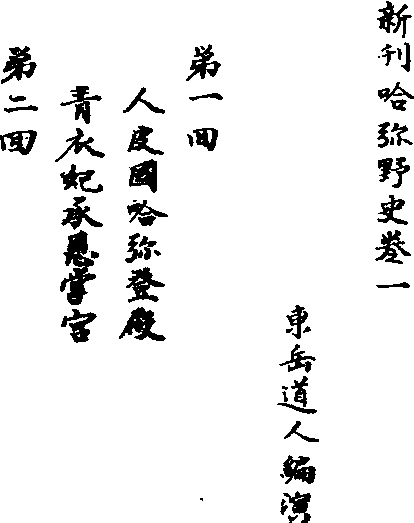 新刊哈弥野史卷一
東岳道人編演
第一回
人皮國哈弥登殿
青衣妃承恩掌宮
第二回